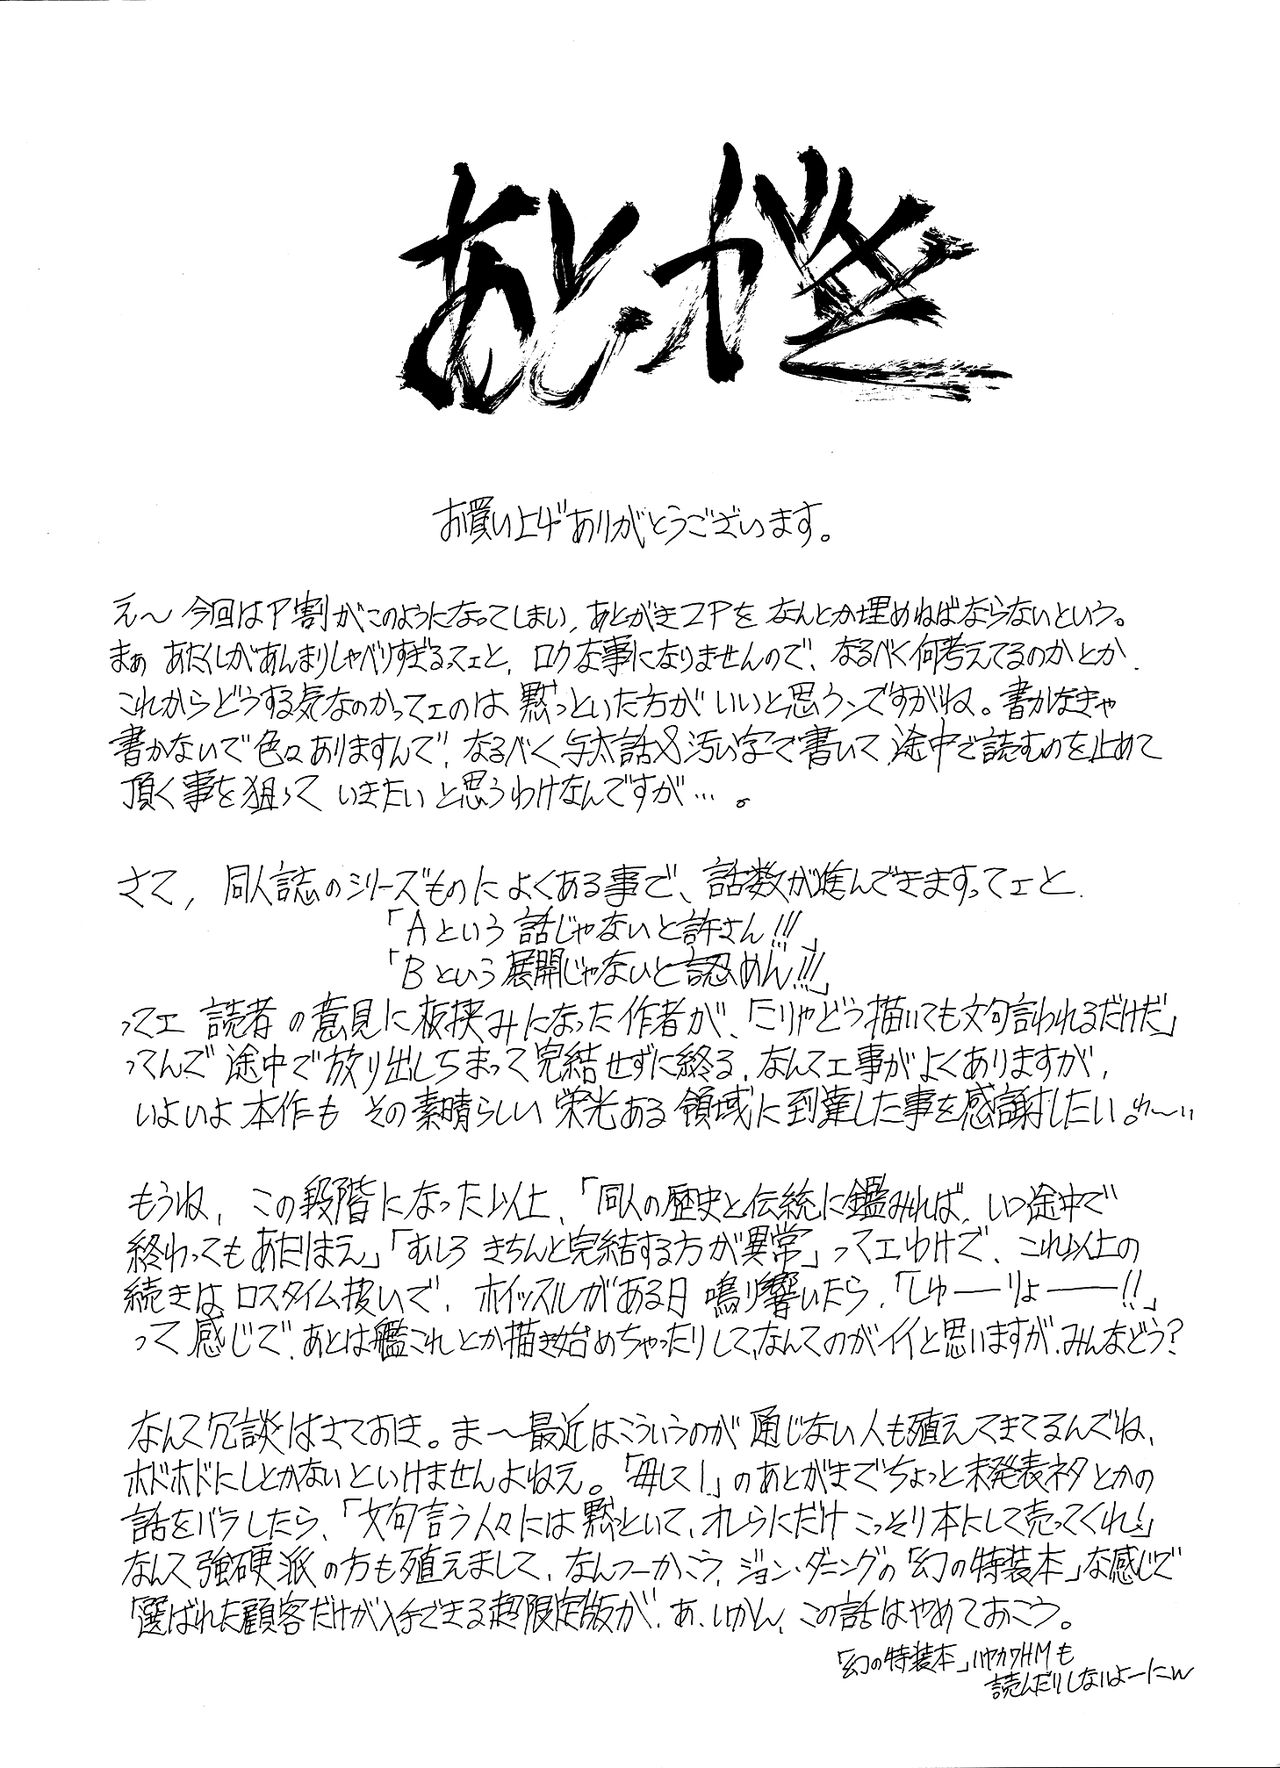 あとがき
お買い上げありがとうございます。
え〜今回はP割がこのようになってしまい、あとがき2Pをなんとか埋めねばならないという。
まぁ あたくしがあんまりしゃべりすぎるってェと、ロクな事になりませんので、なるべく何考えてるのかとか、
これからどうする気なのかってェのは黙っといた方がいいと思うンですがね。書かなきゃ
書かないで色々ありますんで、なるべく与太話&汚い字で書いて途中で読むのを止めて
頂く事を狙っていきたいと思うわけなんですが…。
さて、同人誌のシリーズものによくある事で、話数が進んできますってェと、
「Aという話じゃないと許さん!!!」
「Bという展開じゃないと認めん!!!」
ってェ読者の意見に板挟みになった作者が、「こりゃどう描いても文句言われるだけだ」
ってんで途中で放り出しちまって完結せずに終る、なんてェ事がよくありますが、
いよいよ本作もその素晴らしい栄光ある領域に到達した事を感謝したい。わ〜い
もうね、この段階になった以上、「同人の歴史と伝統に鑑みれば、いつ途中で
終わってもあたりまえ」「むしろきちんと完結する方が異常」ってェわけで、これ以上の
続きはロスタイム扱いで、ホイッスルがある日鳴り響いたら、「しゅーりょー!!」
って感じで、あとは艦これとか描き始めちゃったりして、なんてのがイイと思いますが、みんなどう?
なんて冗談はさておき。ま〜最近はこういうのが通じない人も殖えてきてるんでね、
ホドホドにしとかないといけませんよねえ。「毎して1」のあとがきでちょっと未発表ネタとかの
話をバラしたら、「文句言う人々には黙っといて、オレらにだけこっそり本にして売ってくれ!」
なんて強硬派の方も殖えまして、なんつーかこう、ジョン・ダニングの「幻の特装本」な感じで
「選ばれた顧客だけが入手できる超限定版が、あ、いかん、この話はやめておこう。
「幻の特装本」ハヤカワHMも
読んだりしないよーにw